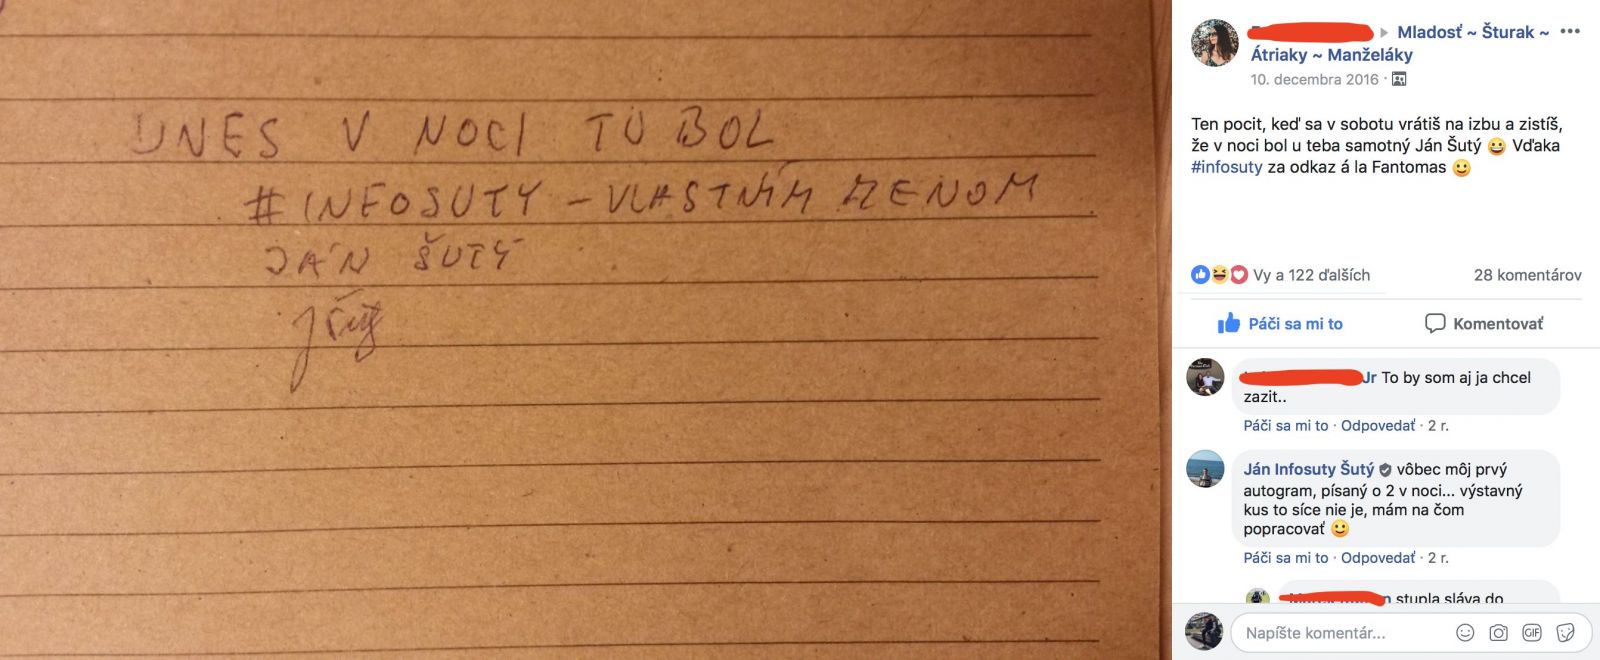 DNES V NOCI TU BOL
#INFOSUTY - VLASTNÝM MENOM
JÁN ŠUTÝ
Mladosť ~ Šturak ~
Átriaky ~ Manželáky
10. decembra 2016
Ten pocit, keď sa v sobotu vrátiš na izbu a zistíš,
že v noci bol u teba samotný Ján Šutý 😀 Vďaka
#infosuty za odkaz á la Fantomas 🙂
Vy a 122 ďalších 28 komentárov
Páči sa mi to Komentovať
Jr To by som aj ja chcel
zazit..
Páči sa mi to · Odpovedať · 2 r.
Ján Infosuty Šutý vôbec môj prvý
autogram, písaný o 2 v noci... výstavný
kus to síce nie je, mám na čom
popracovať 🙂
Páči sa mi to · Odpovedať · 2 r.
n stupla sláva do
Napíšte komentár... GIF